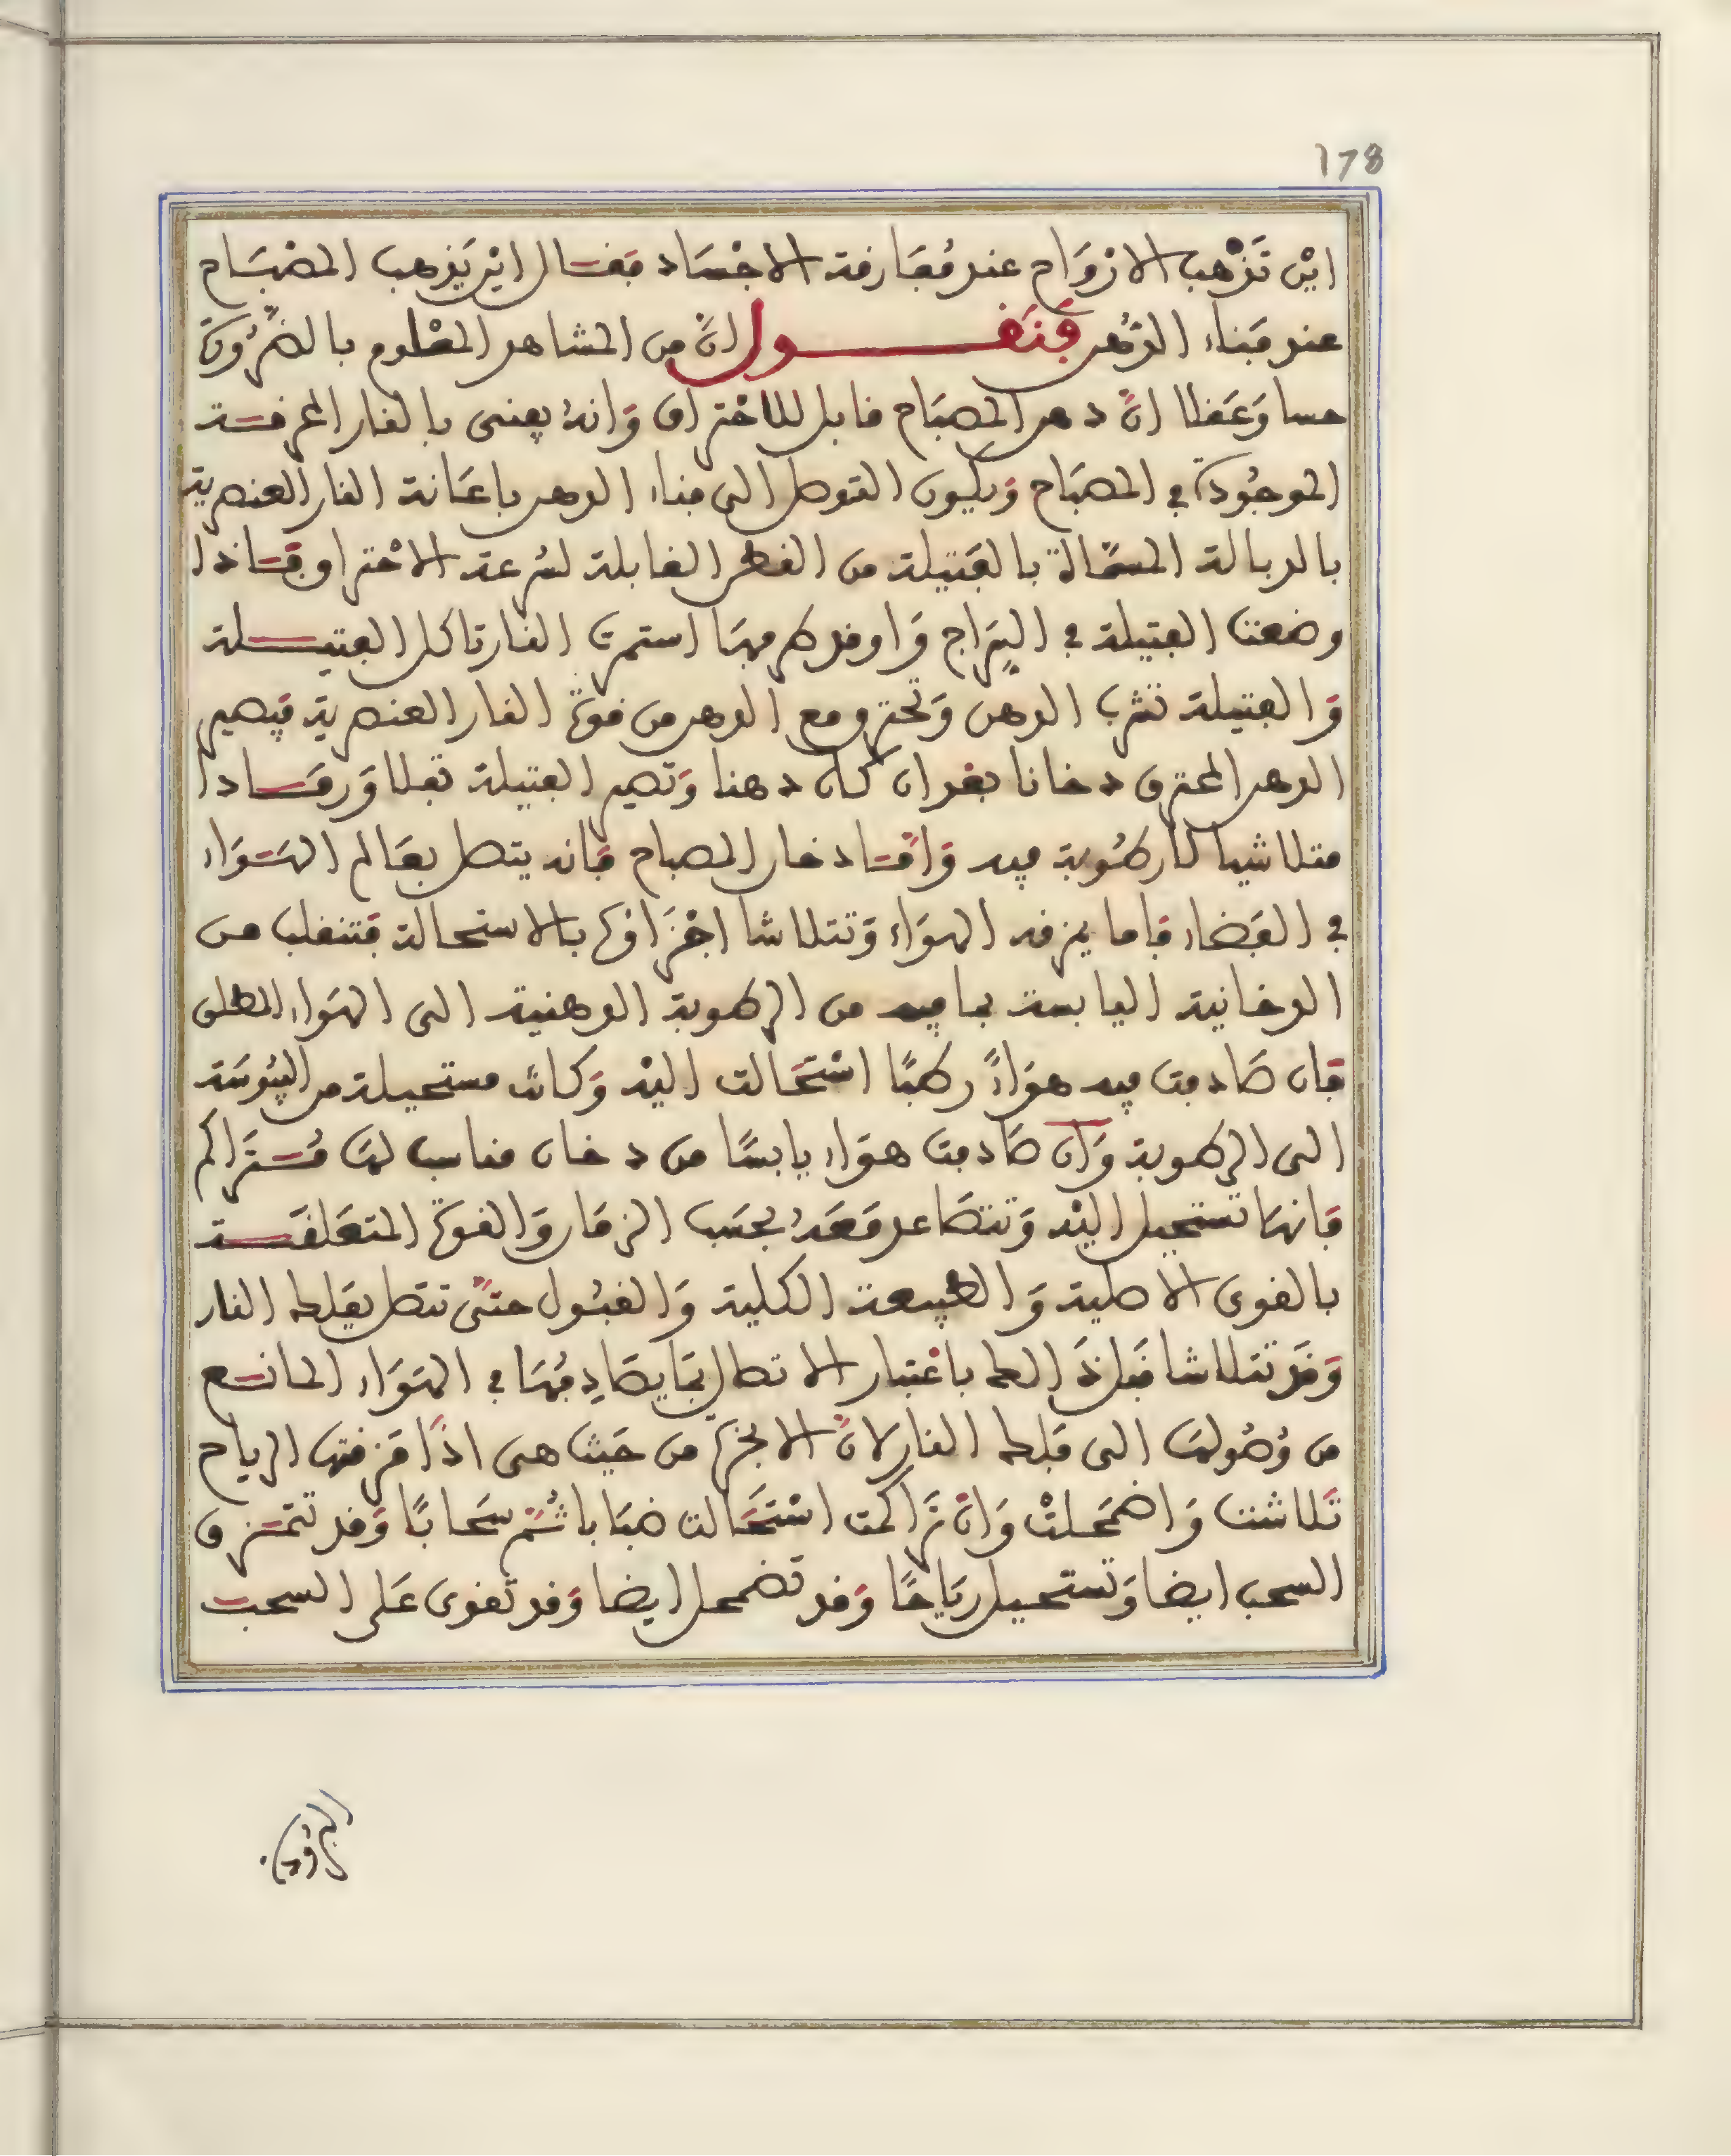 178
اين تَذهب الارْوَاح عند مُفَارفة الاجْسَاد فقال اين يَذهب المصْبَاح
عند فَناء الدُّهن فَنَقول انّ من المشاهد المعْلوم بالضّرُورَة
حسا وَعَقلا انّ دهن المصبَاح قابل للاحْتراق وَانهُ يفنى بالنار المحرقة
الموجُودَة في المصبَاح وَيكون التوصل الى فناء الدهن باعَانة النار العنصرية
بالدبالة المسَمّاة بالفَتيلة من القطن القابلة لسُرعة الاحْتراق فاذا
وضعت الفتيلة في السِّرَاج وَاوقد طرفهَا استمرت النار تاكل الفتيلة
وَالفتيلة تشرب الدهن وَتحترق مع الدهن من قوة النار العنصرية فيصير
الدهن المحترق دخانا بعد ان كان دهنا وَتصير الفتيلة ثفلا وَرمَادا
متلاشيا لا رطُوبة فيه وَامّا دخان المصباح فَانه يتصل بعَالم الهَوَاء
في الفَضاء فَاما يمزقه الهوَاء وَتتلاشا اجْزَاؤه بالاستحالة فتنقلب من
الدخانية اليابسة بما فيه من الرطوبة الدهنية الى الهَوَاء المطلق
فَان صَادفت فيه هوَاءً رطبًا اسْتَحَالت اليْه وَكانت مستحيلة من اليبُوسَة
الى الرطوبة وَان صَادفت هوَاء يابسًا من دخان مناسب لهَا مُترَاكم
فَانهَا تستحيل اليْه وَتتصَاعد مَعَهُ بحسَب الزمَان وَالقوة المتعَلقَة
بالقوى الاصلية وَالطبيعة الكلية وَالقبُول حتىّ تتصل بفَلك النار
وَقَد تتلاشا قَبل ذَالك باعْتبار الاتصال بمَا يصَادِفُهَا في الهَوَاء المانع
من وُصُولهَا الى فَلك النار لانّ الابخرة من حَيث هى اذَا مَزقتها الرياح
تَلاشت وَاضمَحلتْ وَانْ تَرَاكمت اسْتَحَالت ضبَابا ثُمّ سَحابًا وَقد تتمزق
السحب ايضا وَتستحيل ريَاحًا وَقد تضمحل ايضا وَقد تَقوى عَلى السحب
البرُودة